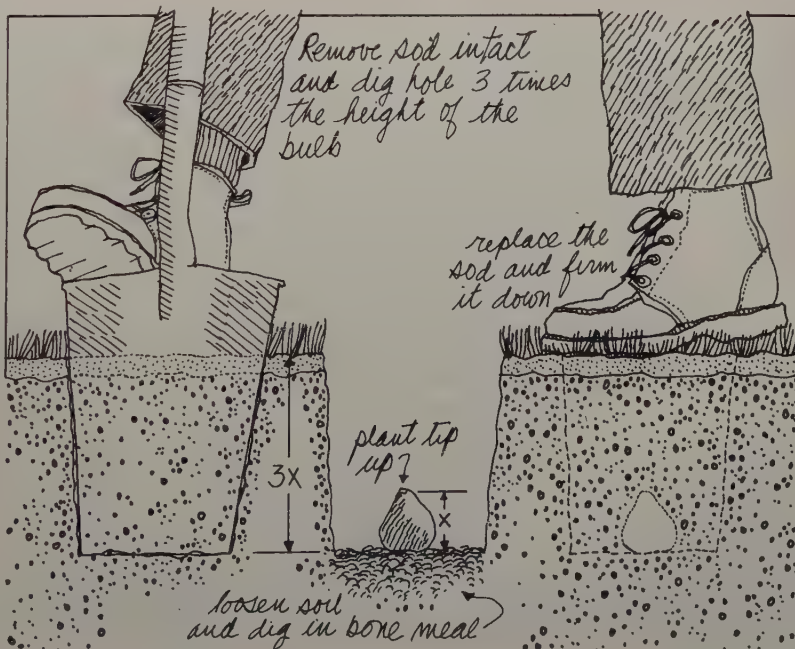 Remove sod intact
and dig hole 3 times
the height of the
bulb
replace the
sod and firm
it down
plant tip
up
3X
X
loosen soil
and dig in bone meal